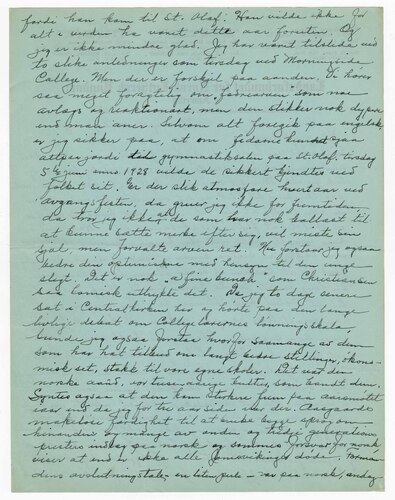 fordi han kom til St. Olaf. Han vilde ikke for
alt i verden ha været dette aar foruten. Og
jeg er ikke mindre glad. Jeg har været tilstede ved
to slike anledninger som tirsdag ved Morningside
College. Men der er forskjel paa aanden. Vi hører
saa meget foragtelig om "fædrearven" som noe
avlags og reaktionært, men den stikker nok dypere
end man aner. Selv om alt foregik paa engelsk,
er jeg sikker paa, at om fedrene kunde
gymnastiksalen paa St. Olaf, tirsdag
5te juni anno 1928 vilde de sikkert kjendt ved
folket sit. Er der slik atmosfære hvert aar ved
avgangsfesten, da gruer jeg ikke for fremtiden,
da tror jeg ikke at de som har nok ballast til
at kunne sætte merke efter sig, vil miste sin
sjæl, men forvalte arven ret. Nu forstaar jeg ogsaa
bedre din optimisme med hensyn til den unge
slegt. Det er nok "a fine bunch", som Christiansen
saa komisk uttrykte det. Da jeg to dage senere
sat i Centralkirken her og hørte paa den lange
debat om College lærernes lønningsskala,
jeg ogsaa hvorfor saa mange av dem
som har hat tilbud om langt bedre stillinger, økono-
misk set, stakk til vore egne skoler. Det var den
norske aand, vor tusenaarige kultur, som bandt dem.
Syntes ogsaa at den kom sterkere frem paa aarsmøtet
iaar end da jeg for tre aar siden var der. Aasgaards
makeløse færdighet til at bruke begge sprog om
hinanden og mange av anden og tredje generations
prester indlæg paa norsk og sommes for norsk
viser at end er ikke alle Jomsvikinger døde. Borma-
dens avslutningstale, en liten perle - var paa norsk, endog